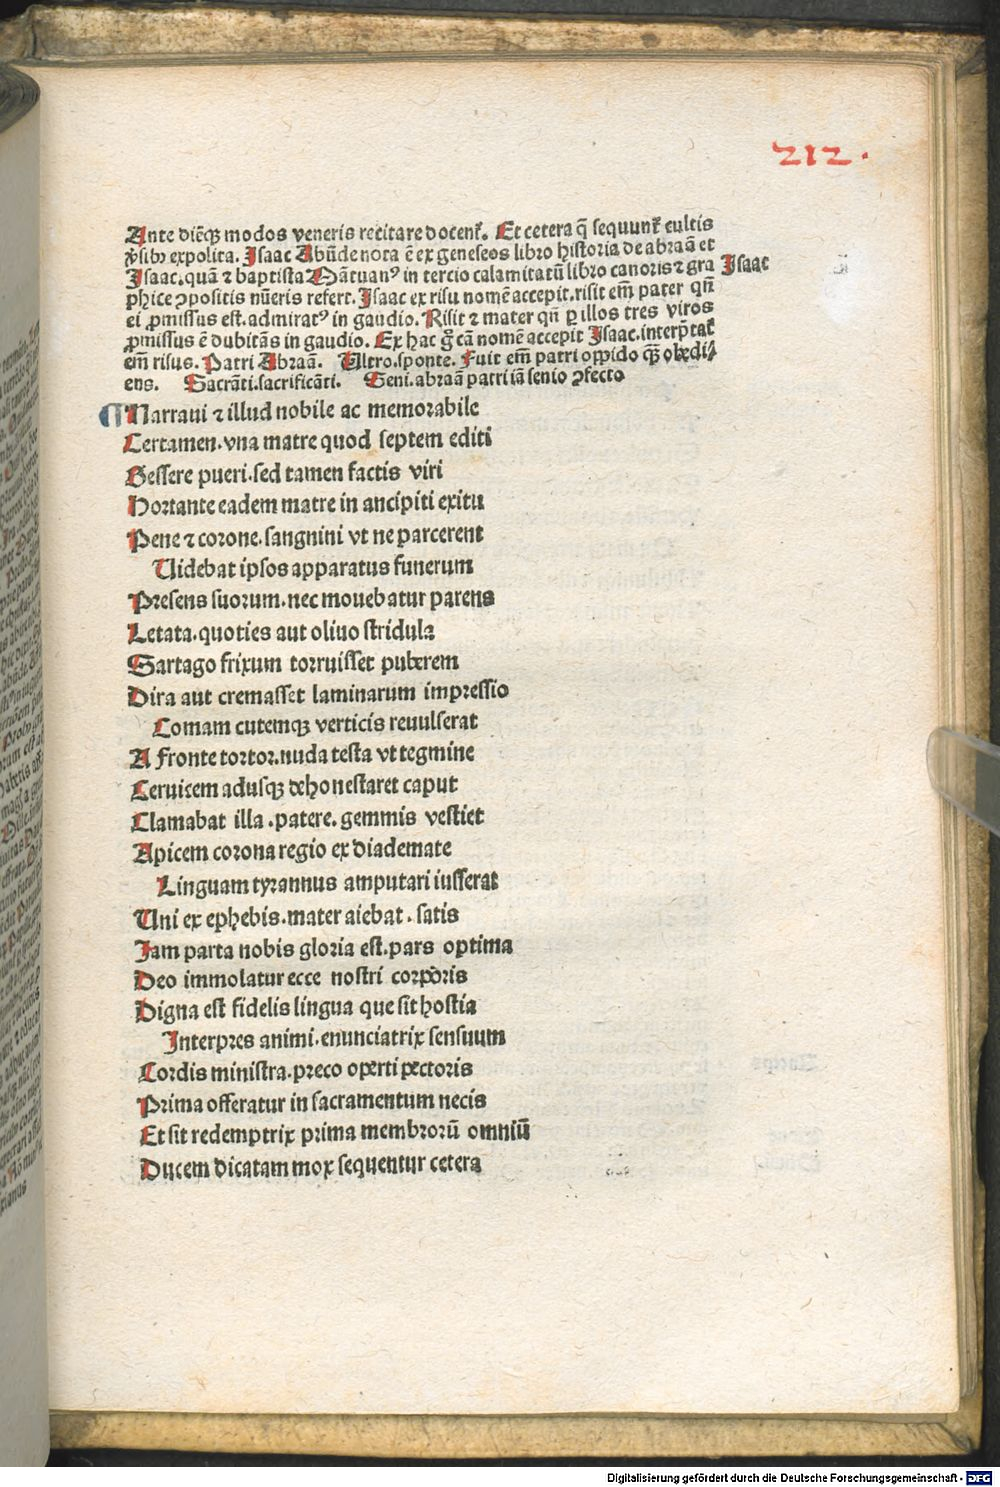 212.
Ante diēꝗ modos veneris recitare docent᷑. Et cetera q̄ sequunt᷑ cultis
ꝟsibꝫ expolita. Isaac Abūde nota ē ex geneseos libro historia de abraā et
Isaac. quā ⁊ baptista Mātuanꝰ in tercio calamitatū libro canoris ⁊ gra Isaac
phice ꝯpositis nūeris refert. Isaac ex risu nomē accepit. risit em̄ pater qn̄
ei ꝓmissus est. admiratꝰ in gaudio. Risit ⁊ mater qn̄ ꝑ illos tres viros
ꝓmissus ē dubitās in gaudio. Ex hac g̃ cā nomē accepit Isaac. interp̄tat᷑
em̄ risus. Patri Abraā. Ultro. sponte. Fuit em̄ patri oppido ꝙꝫ obedi⸗
ens. Sacrāti. sacrificāti. Seni. abraā patri iā senio ꝯfecto
¶ Narraui ⁊ illud nobile ac memorabile
Certamen. vna matre quod septem editi
Gessere pueri. sed tamen factis viri
Hortante eadem matre in ancipiti exitu
Pene ⁊ corone. sangnini vt ne parcerent
Uidebat ipsos apparatus funerum
Presens suorum. nec mouebatur parens
Letata. quoties aut oliuo stridula
Sartago frixum torruisset puberem
Dira aut cremasset laminarum impressio
Comam cutemqꝫ verticis reuulserat
A fronte tortor. nuda testa vt tegmine
Ceruicem adusqꝫ dehonestaret caput
Clamabat illa. patere. gemmis vestiet
Apicem corona regio ex diademate
Linguam tyrannus amputari iusserat
Uni ex ephebis. mater aiebat. satis
Jam parta nobis gloria est. pars optima
Deo immolatur ecce nostri corporis
Digna est fidelis lingua que sit hostia
Interpres animi. enunciatrix sensuum
Cordis ministra. preco operti pectoris
Prima offeratur in sacramentum necis
Et sit redemptrix prima membrorū omniū
Ducem dicatam mox sequentur cetera
Digitalisierung gefördert durch die Deutsche Forschungsgemeinschaft - DFG